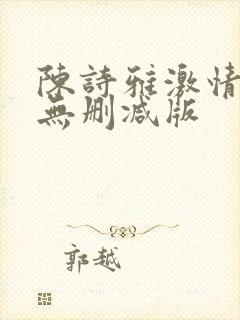 陳詩雅激情
無刪減版
郭越